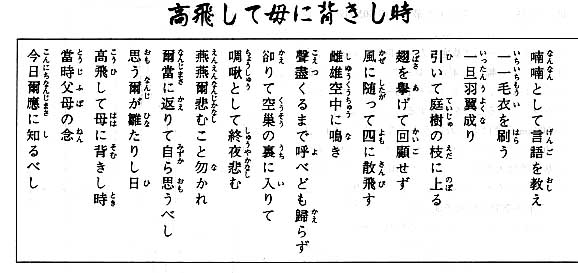 高飛して母に背きし時
喃喃として言語を教え
一一毛衣を刷う
一旦羽翼成り
引いて庭樹の枝に上る
翅を擧げて回顧せず
風に随って四に散飛す
雌雄空中に鳴き
聲盡くるまで呼べども歸らず
卻りて空巣の裏に入りて
啁啾として終夜悲む
燕燕爾悲むこと勿かれ
爾當に返りて自ら思うべし
思う爾が雛たりし日
高飛して母に背きし時
當時父母の念
今日爾應に知るべし